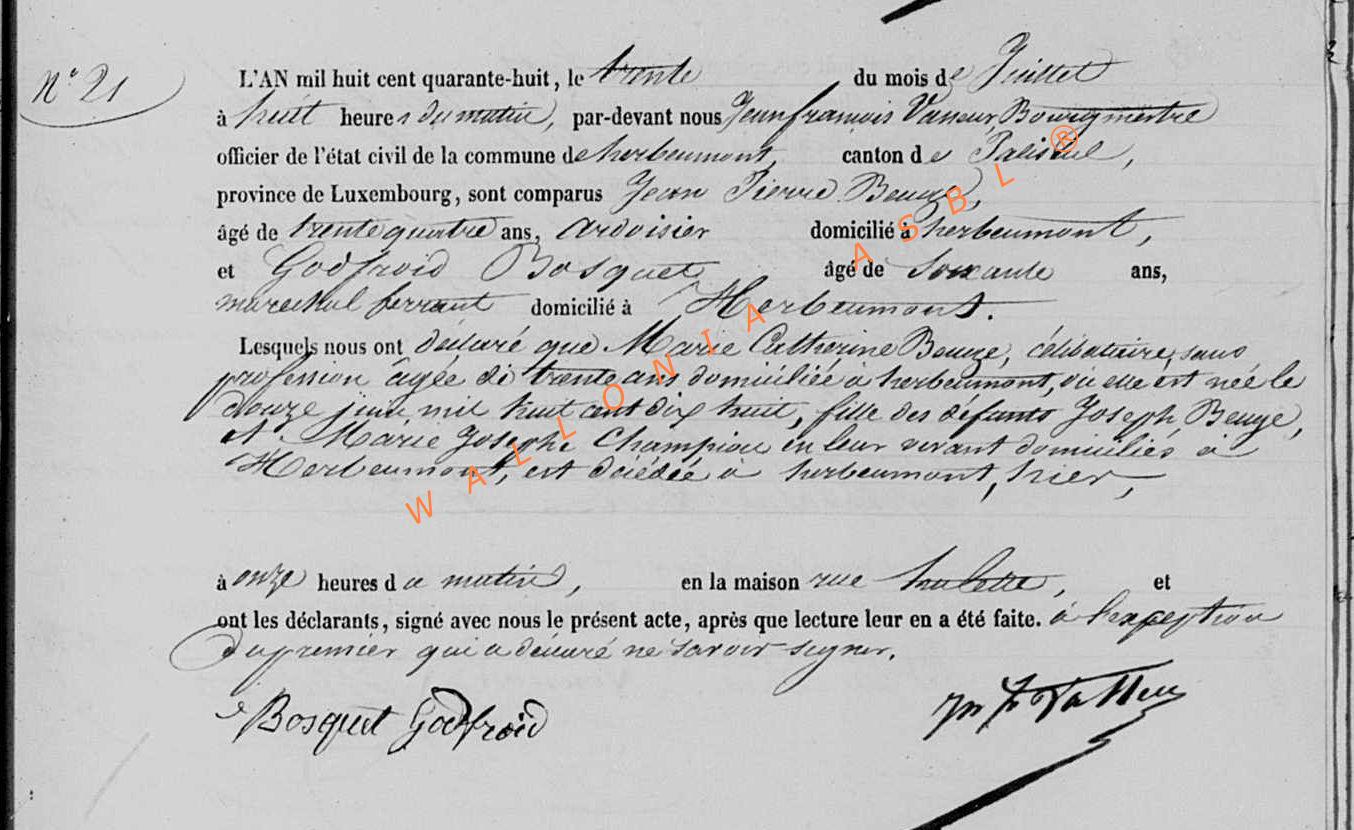 N° 21
L'AN mil huit cent quarante-huit, le trente du mois de Juillet
à huit heures du matin, par-devant nous Jean françois Vasseur Bourgmestre
officier de l'état civil de la commune de herbeumont, canton de Paliseul,
province de Luxembourg, sont comparus Jean Pierre Beuze,
âgé de trente quatre ans, Ardoisier domicilié à herbeumont,
et Godfroid Bosquet âgé de Soixante ans,
marechal ferrant domicilié à Herbeumont.
Lesquels nous ont déclaré que Marie Catherine Beuze, célibataire, sans
profession agée de trente ans domiciliée à herbeumont, où elle est née le
douze juin mil huit cent dix huit, fille des défunts Joseph Beuze,
et Marie Josephe Champion en leur vivant domiciliés à
Herbeumont, est décédée à herbeumont, hier,
à onze heures du matin, en la maison rue , et
ont les déclarants, signé avec nous le présent acte, après que lecture leur en a été faite. à l'exception
du premier qui a déclaré ne savoir signer.
Bosquet Godfroid
WALLONIA ASBL ®